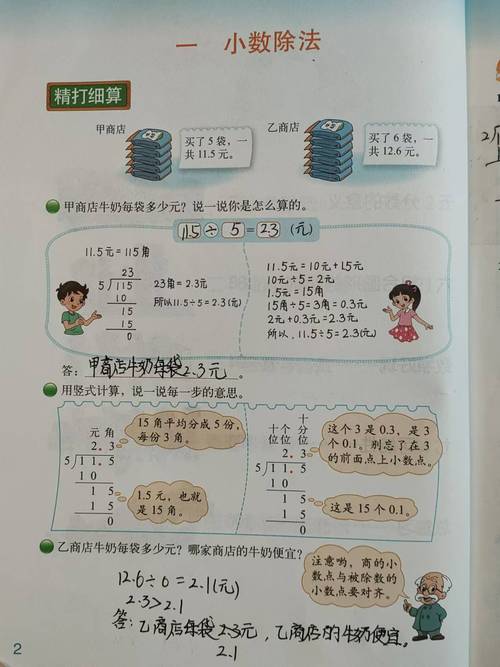 一 小数除法
精打细算
甲商店
买了5袋，一
共11.5元。
乙商店
买了6袋，一
共12.6元。
甲商店牛奶每袋多少元？说一说你是怎么算的。
11.5÷5=2.3（元）
11.5元=115角
23
5 115
10
15
15
0
23角=2.3元
所以11.5÷5=2.3(元)
11.5元=10元+1.5元
10元÷5=2元
1.5元=15角
15角÷5=3角=0.3元
2元+0.3元=2.3元
所以，11.5÷5=2.3(元)
答：甲商店牛奶每袋2.3元。
用竖式计算，说一说每一步的意思。
元角
2.3
5 11.5
10
1 5
1 5
0
15角平均分成5份，
每份3角。
1.5元，也就
是15角。
十个十
位位分
位
2.3
5 11.5
10
1 5
1 5
0
这个3是0.3，是3
个0.1。别忘了在3
的前面点上小数点。
这是15个0.1。
乙商店牛奶每袋多少元？哪家商店的牛奶便宜？
12.6÷6=2.1(元)
2.3>2.1
答：乙商店每袋2.3元，乙商店的牛奶便宜。
2.1
注意哟，商的小
数点与被除数的
小数点要对齐。
2